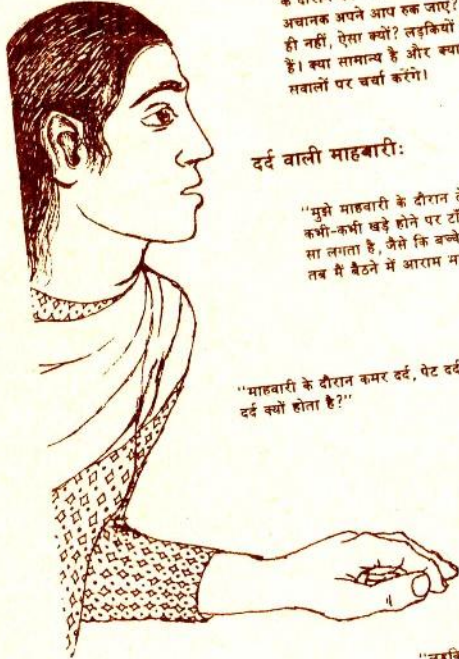 के दौरान
अचानक अपने आप रुक जाएं?
ही नहीं, ऐसा क्यों? लड़कियों
हैं। क्या सामान्य है और क्या
सवालों पर चर्चा करेंगे।
दर्द वाली माहवारी:
"मुझे माहवारी के दौरान
कभी-कभी खड़े होने पर
सा लगता है, जैसे कि बच्चे
तब मैं बैठने में आराम
"माहवारी के दौरान कमर दर्द, पेट दर्द
दर्द क्यों होता है?"